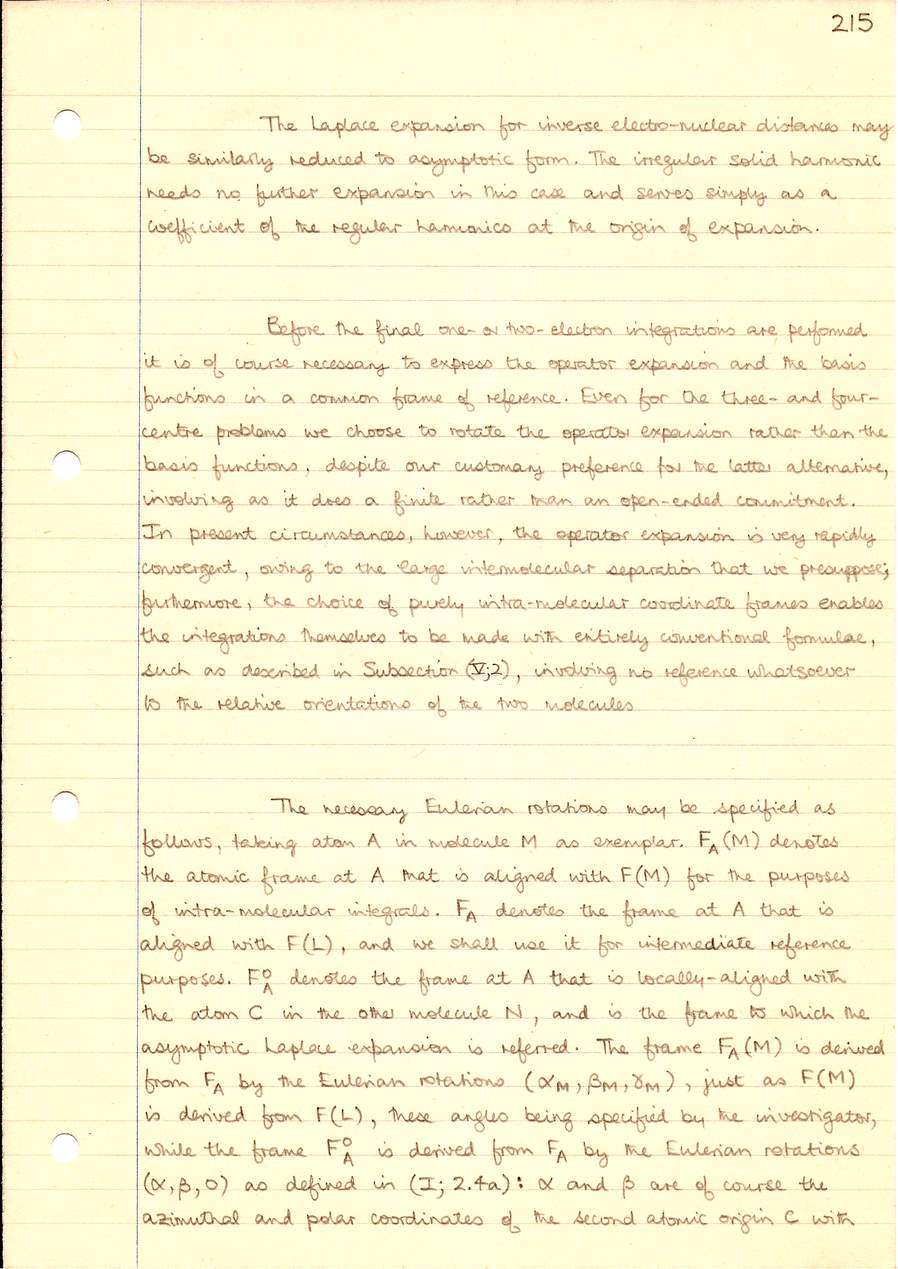 215
The Laplace expansion for inverse electro-nuclear distances may
be similarly reduced to asymptotic form. The irregular solid harmonic
needs no further expansion in this case and serves simply as a
coefficient of the regular harmonics at the origin of expansion.
Before the final one- or two-electron integrations are performed
it is of course necessary to express the operator expansion and the basis
functions in a common frame of reference. Even for the three- and four-
centre problems we choose to rotate the operator expansion rather than the
basis functions, despite our customary preference for the latter alternative,
involving as it does a finite rather than an open-ended commitment.
In present circumstances, however, the operator expansion is very rapidly
convergent, owing to the large intermolecular separation that we presuppose;
furthermore, the choice of purely intra-molecular coordinate frames enables
the integrations themselves to be made with entirely conventional formulae,
such as described in Subsection (V;2), involving no reference whatsoever
to the relative orientations of the two molecules
The necessary Eulerian rotations may be specified as
follows, taking atom A in molecule M as exemplar. F_A(M) denotes
the atomic frame at A that is aligned with F(M) for the purposes
of intra-molecular integrals. F_A denotes the frame at A that is
aligned with F(L), and we shall use it for intermediate reference
purposes. F_A^0 denotes the frame at A that is locally-aligned with
the atom C in the other molecule N, and is the frame to which the
asymptotic Laplace expansion is referred. The frame F_A(M) is derived
from F_A by the Eulerian rotations (α_M, β_M, γ_M), just as F(M)
is derived from F(L), these angles being specified by the investigator,
while the frame F_A^0 is derived from F_A by the Eulerian rotations
(α, β, 0) as defined in (I; 2.4a): α and β are of course the
azimuthal and polar coordinates of the second atomic origin C with